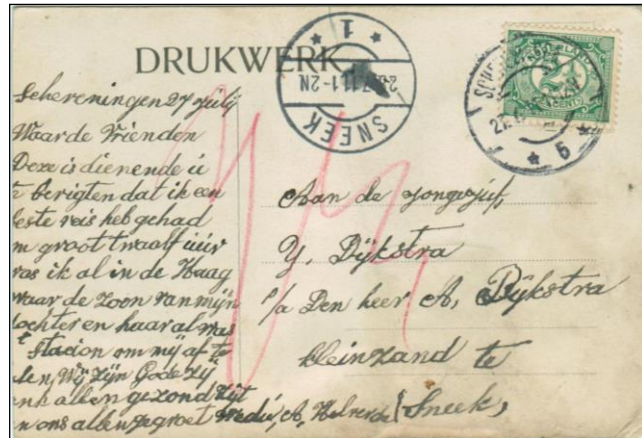 DRUKWERK
SNEEK
1
5
Scheveningen 27 Julij
Waarde Vrienden
Deze is dienende u
berigten dat ik een
beste reis heb gehad
groot twaalf uur
was ik al in de Haag
waar de zoon van mijn
dochter en haar al was
Stacion om mij af te
Wij zijn Gode zij
allen gezond zijt
ons allen gegroet
Aan de jongejuf,
Y, Dijkstra
p/a Den heer A, Dijkstra
kleinzand te
Sneek,